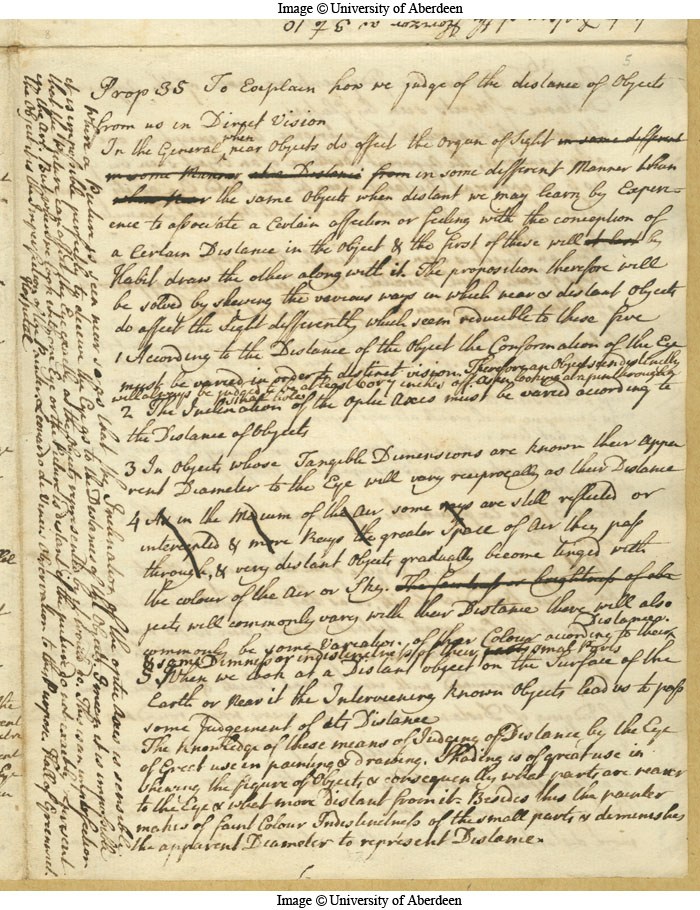 Image © University of Aberdeen
5
Prop 35 To Explain how we judge of the distance of Objects
from us in Direct Vision
In the General when near Objects do affect the Organ of Sight in some different
in some Manner at a Distance from in some different Manner than
the same Objects when distant we may learn by Experi-
ence to associate a Certain affection or feeling with the conception of
a Certain Distance in the Object & the first of these will at last by
Habit draw the other along with it. The proposition therefore will
be solved by shewing the various ways in which near & distant Objects
do affect the Sight differently which seem reducible to these five
1 According to the Distance of the Object the Conformation of the Eye
must be varied in order to distinct vision. Therefore an Object seen distinctly
will always be judged to be at least 6 or 7 inches off. As in looking at a pin through a
pin hole
2 The Inclination of the Optic Axes must be varied according to
the Distance of Objects
3 In Objects whose Tangible Dimensions are known their Appa
rent Diameter to the Eye will vary reciprocally as their Distance
4 As in the Medium of the Air some rays are still reflected or
intercepted & more Rays the greater Space of Air they pass
through, & very distant Objects gradually become tinged with
the colour of the Air or Sky. The faintness or brightness of obj
jects will commonly vary with their Distance there will also
commonly be some Variation of their Colour according to their Distances.
& some Dimness or indistinctness of their small Parts
5 When we look at a Distant object on the Surface of the
Earth or near it the Intervening known Objects lead us to pass
some Judgement of its Distance
The Knowledge of these means of Judging of Distance by the Eye
of Great use in painting & drawing. Shading is of great use in
shewing the figure of Objects & consequently what parts are nearer
to the Eye & what more distant from it. Besides this the painter
makes of faint Colour Indistinctness of the small parts & diminishes
the apparent Diameter to represent Distance.
where a Picture is seen near so as that the Inclination of the optic Axes is sensible
it is impossible perfectly to deceive the Eye as to the Distance of the Objects
the Objects is the Imperfection of the Painter. Leonardo da Vinci Observation to this Purpose. Hall of Greenwich
Hospital
Image © University of Aberdeen